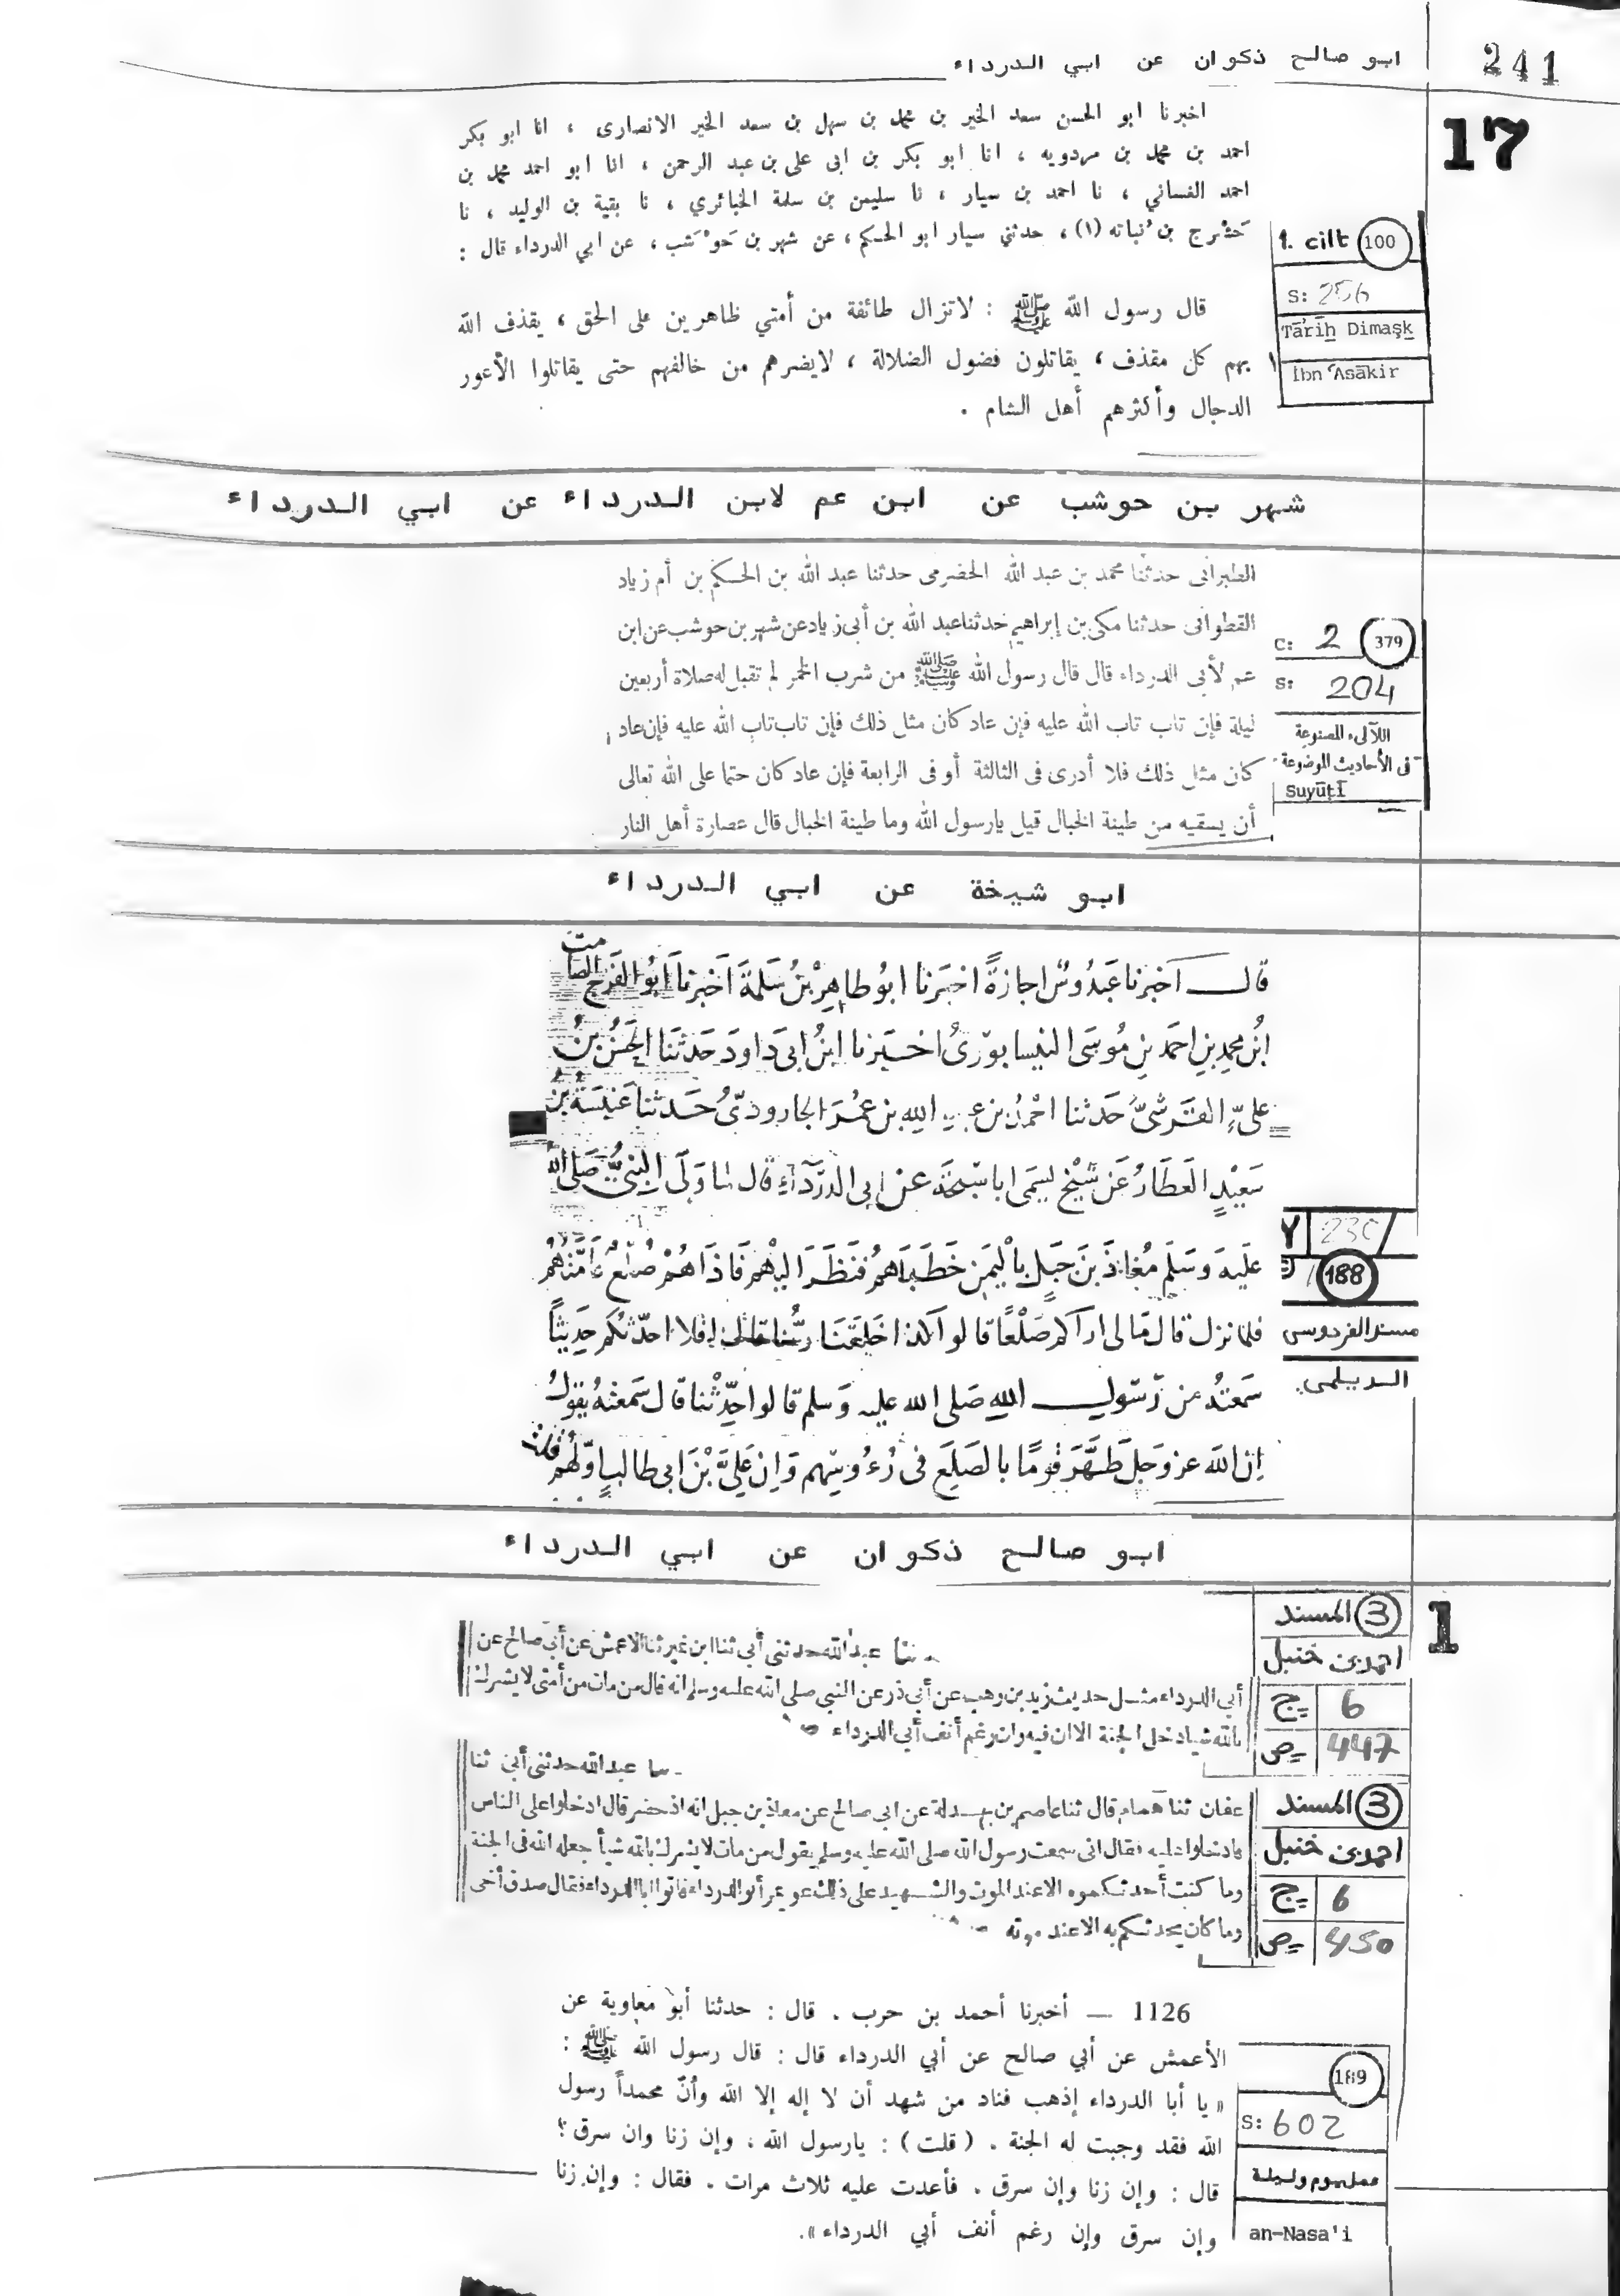 ابو صالح ذكوان عن ابي الدرداء
241
17
اخبرنا ابو الحسن سعد الخير بن محمد بن سهل بن سعد الخير الانصارى ، انا ابو بكر
احمد بن محمد بن مردويه ، انا ابو بكر بن ابى على بن عبد الرحمن ، انا ابو احمد محمد بن
احمد الغساني ، نا احمد بن سيار ، نا سليمن بن سلمة الخبائري ، نا بقية بن الوليد ، نا
حَشْرج بن نُباته (١) ، حدثني سيار ابو الحكم ، عن شهر بن حَوْشَب ، عن ابي الدرداء قال :
قال رسول الله ﷺ : لاتزال طائفة من أمتي ظاهرين على الحق ، يقذف الله
بهم كل مقذف ، يقاتلون فضول الضلالة ، لايضرهم من خالفهم حتى يقاتلوا الأعور
الدجال وأكثرهم أهل الشام .
1. cilt 100
S: 256
Tāriḫ Dimaşḳ
İbn ʿAsākir
شهر بن حوشب عن ابن عم لابن الدرداء عن ابي الدرداء
الطبرانى حدثنا محمد بن عبد الله الحضرمى حدثنا عبد الله بن الحكم بن أم زياد
القطوانى حدثنا مكى بن إبراهيم حدثنا عبد الله بن أبى زياد عن شهر بن حوشب عن ابن
عم لأبى الدرداء قال قال رسول الله ﷺ من شرب الخمر لم تقبل له صلاة أربعين
ليلة فإن تاب تاب الله عليه فإن عاد كان مثل ذلك فإن تاب تاب الله عليه فإن عاد
كان مثل ذلك فلا أدرى فى الثالثة أو فى الرابعة فإن عاد كان حتما على الله تعالى
أن يسقيه من طينة الخبال قيل يارسول الله وما طينة الخبال قال عصارة أهل النار
C: 2 379
S: 204
اللآلىء المصنوعة
فى الأحاديث الموضوعة
Suyūṭī
ابو شيخة عن ابي الدرداء
قال اخبرنا عَبدُوسٌ اجازةً اخبَرنا ابُو طاهِرِ بْنُ سَلمَةَ اَخبرنا اَبُو الفَرَج الصامت
ابنُ محمدِ بنِ احمَد بنِ مُوسَى النيسابورىُّ اخبَرنا ابنُ ابى دَاودَ حَدثنَا الحَسَنُ بنُ
علىٍّ القَرشىُّ حَدثنا احْمدُ بن عبد اللهِ بن عُمَرَ الجارودىُّ حَدثنا عَنبسَةُ بنُ
سَعيْدٍ العَطارُ عَن شَيْخٍ يسَمى ابا شيخةَ عن ابى الدرْدَاءِ قال لما وَلَّى النبىُّ صَلى الله
عَليهِ وَسَلم مُعَاذَ بنَ جَبَلٍ باليَمَنِ خَطَبَاهمُ فنَظَرَ اليهْم فَاذَا هُمْ صُلْعٌ عَامَّتُهُمْ
فلما نزل قال مَا لى اراكم صَلْعًا قالوا كذا خَلقَنَا ربُّنا قال افلا احدّثكم حَديثًا
سَمعتُه من رَسُول اللهِ صَلى الله عليه وَسلم قالوا حدِّثْنا قال سَمعتُهُ يقولُ
اِنّ الله عز وَجلَّ طَهَّرَ قومًا بالصَلَعِ فى رُءُوسِهم وَاِنّ عَلىَّ بْنَ ابى طالبٍ اوّلهُم
188
مسند الفردوس
الديلمى
ابو صالح ذكوان عن ابي الدرداء
1
ثنا عبد الله حدثنى أبى ثنا ابن نمير ثنا الاعمش عن أبى صالح عن
أبى الدرداء مثل حديث زيد بن وهب عن أبى ذر عن النبى صلى الله عليه وسلم انه قال من مات من أمتى لا يشرك
بالله شيأ دخل الجنة الا ان فيه وان رغم أنف أبى الدرداء
3 المسند
احمد بن حنبل
ج 6
ص 447
عبد الله حدثنى أبى ثنا
عفان ثنا همام قال ثنا عاصم بن بهدلة عن ابى صالح عن معاذ بن جبل انه اذ حضر قال ادخلوا على الناس
فادخلوا عليه فقال انى سمعت رسول الله صلى الله عليه وسلم يقول من مات لا يشرك بالله شيأ جعله الله فى الجنة
وما كنت أحدثكموه الا عند الموت والشهيد على ذلك عويمر أبو الدرداء فاتوا ابا الدرداء فقال صدق أخى
وما كان يحدثكم به الا عند موته
3 المسند
احمد بن حنبل
ج 6
ص 450
1126 — أخبرنا أحمد بن حرب . قال : حدثنا أبو معاوية عن
الأعمش عن أبي صالح عن أبي الدرداء قال : قال رسول الله ﷺ :
« يا أبا الدرداء إذهب فناد من شهد أن لا إله إلا الله وأنّ محمداً رسول
الله فقد وجبت له الجنة . ( قلت ) : يارسول الله ، وإن زنا وان سرق ؟
قال : وإن زنا وإن سرق . فأعدت عليه ثلاث مرات . فقال : وإن زنا
وإن سرق وإن رغم أنف أبي الدرداء » .
189
S: 602
عمل يوم وليلة
an-Nasa'i